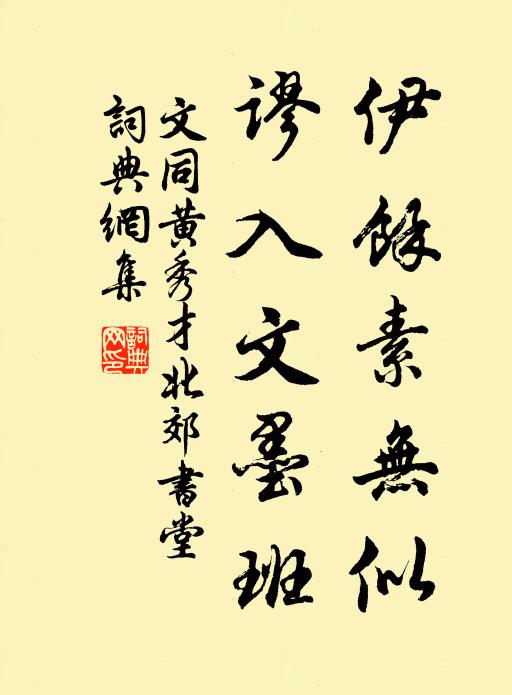 伊餘素無似
謬入文墨班
文同黃秀才北郊書堂
詞典網集
詞典网印